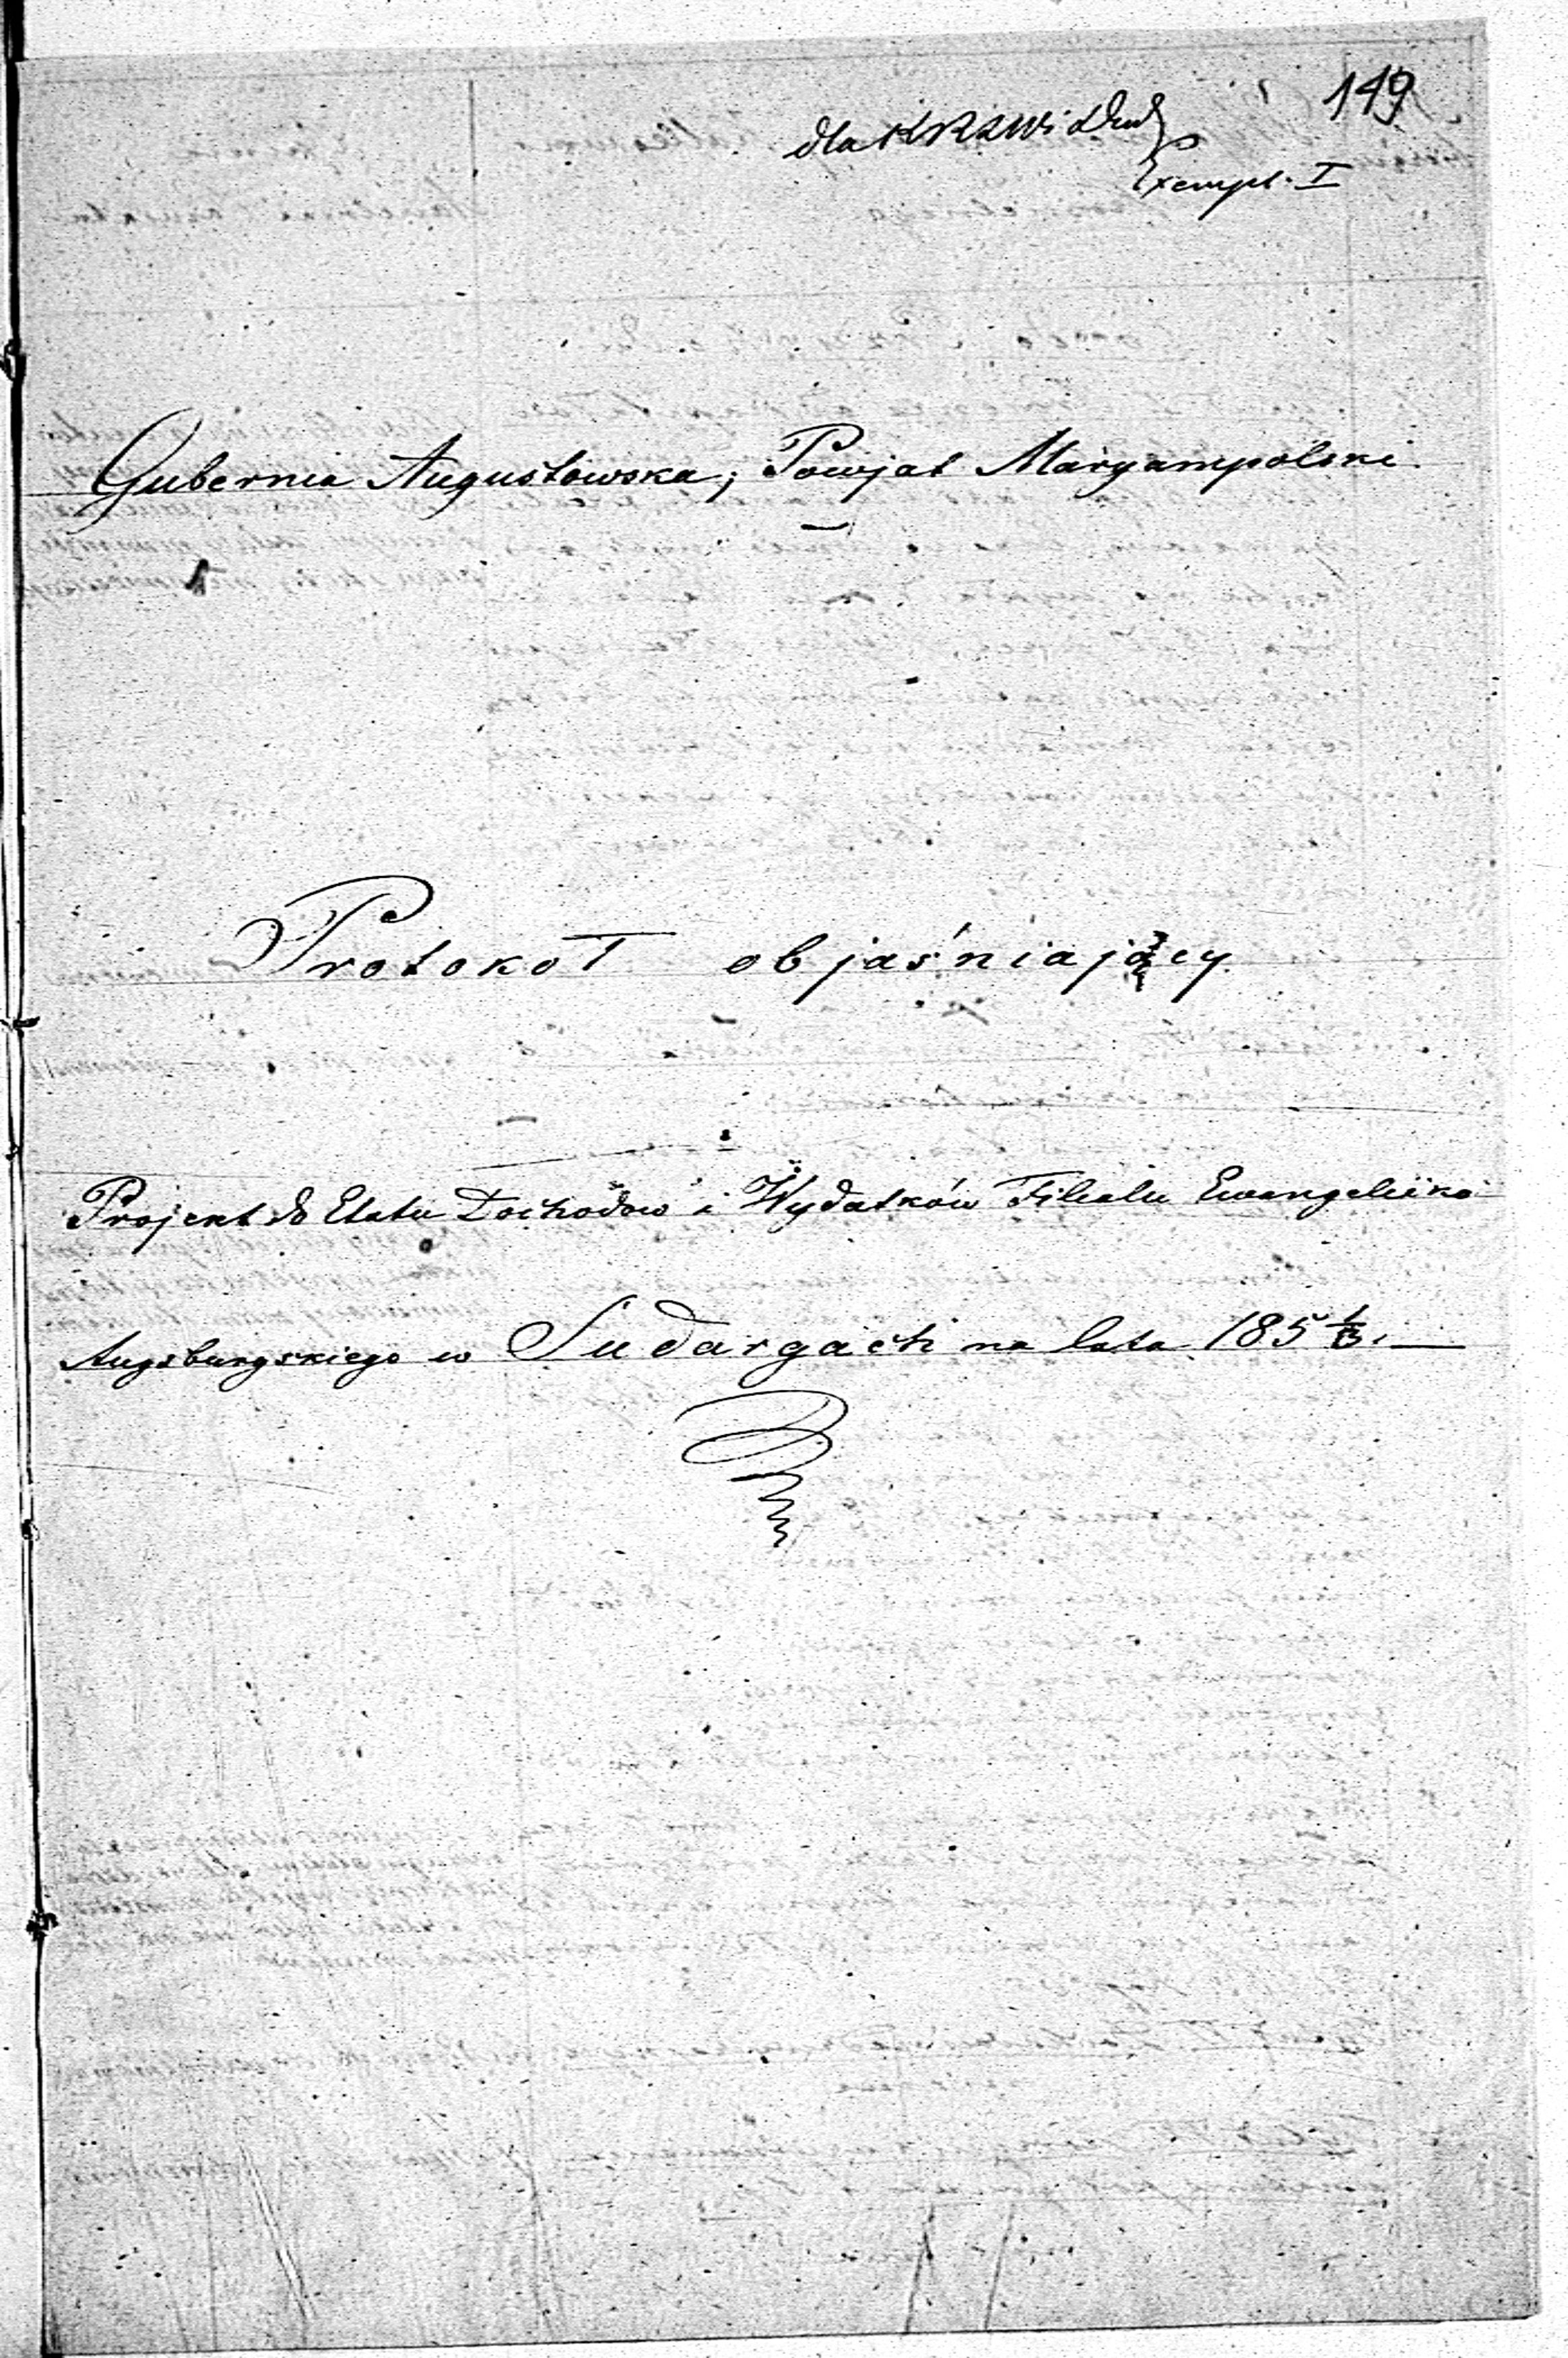 149
dla KRZWiD
Exempl. I
Gubernia Augustowska, Powjat Maryampolski.
Protokoł objaśniający.
Projekt do Etatu Dochodów i Wydatków Filialu Ewangelicko
Augsburgskiego w Sudargach na lata 185 1/3. —